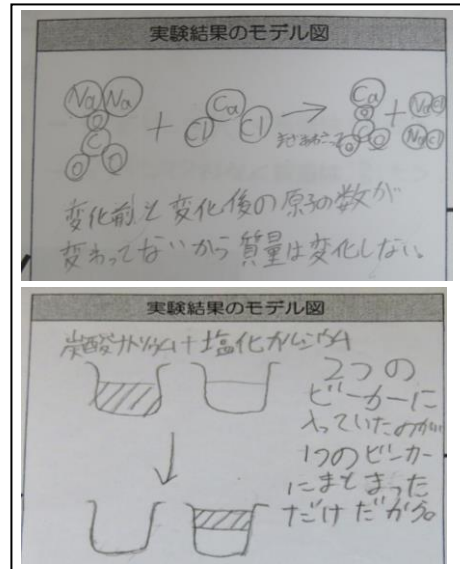 実験結果のモデル図
Na Na O C O O + Ca Cl Cl → Ca O C O O + Na Cl Na Cl
変化前と変化後の原子の数が
変わってないから質量は変化しない。
実験結果のモデル図
炭酸ナトリウム+塩化カルシウム
2つの
ビーカーに
入っていたのが
1つのビーカー
にまとまった
だけだから。